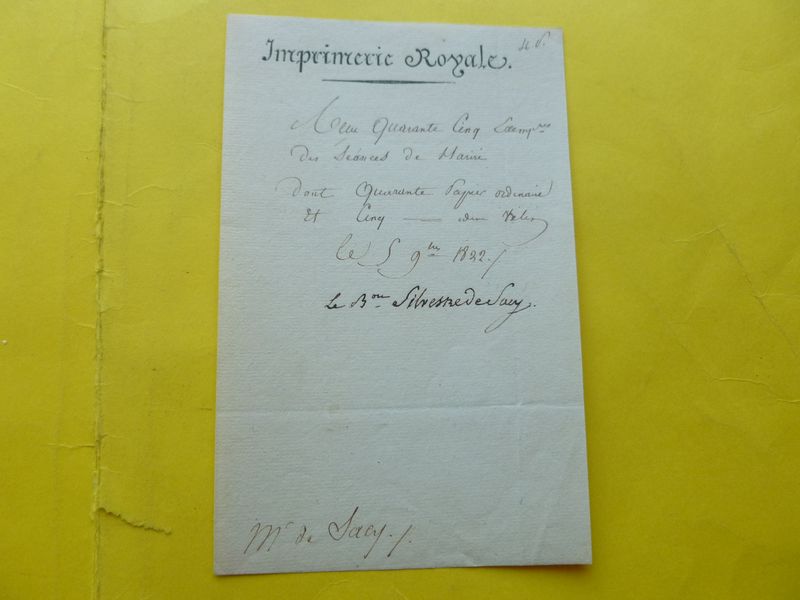 Imprimerie Royale.
Reçu Quarante Cinq Exemp.res
des Séances de Hariri
dont Quarante Papier ordinaire
Et Cinq — dn Vélin
le 5 9bre 1822./
Le Bon Silvestre de Sacy.
Mr de Sacy./.